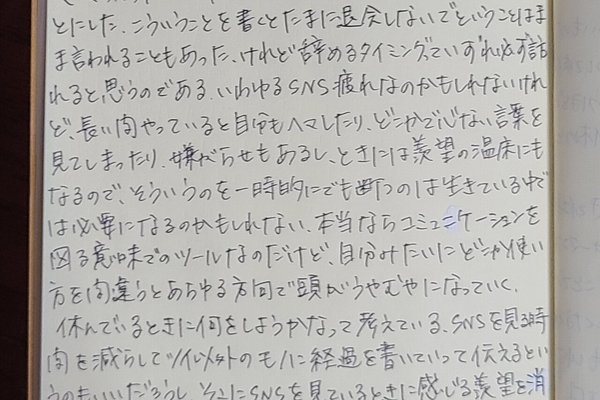 とにした。こういうことを書くとたまに退会しないでということはま
ま言われることもあった、けれど辞めるタイミングっていずれ必ず訪
れると思うのである。いわゆるSNS疲れなのかもしれないけれ
ど、長い間やっていると自分もヘマしたり、どこかで心ない言葉を
見てしまったり、嫌がらせもあるし、ときには羨望の温床にも
なるので、そういうのを一時的にでも断つのは生きている中で
は必要になるのかもしれない。本当ならコミュニケーションを
図る意味でのツールなのだけど、自分みたいにどこか使い
方を間違うとあらゆる方向で頭がうやむやになっていく。
休んでいるときに何をしようかなって考えている。SNSを見る時
間を減らしてツイ以外のモノに経過を書いていって伝えるとい
うのもいいだろうし、そこにSNSを見ているときに感じる羨望を消